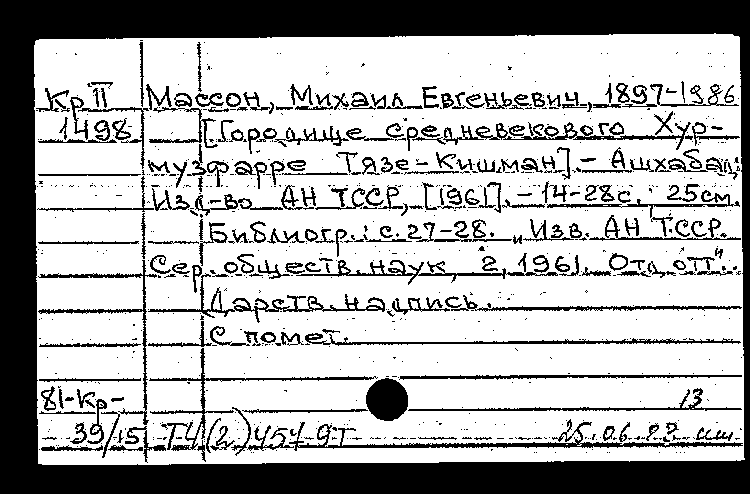 Кр II Массон, Михаил Евгеньевич, 1897-1986
1498 [Городище средневекового Хур-
музфарре Тязе-Кишман].- Ашхабад:
Изд-во АН ТССР, [1961]. - 14-28с. ; 25см.
Библиогр.: с. 27-28. "Изв. АН ТССР.
Сер. обществ. наук, 2, 1961. Отд. отт"..
Дарств. надпись.
С помет.
81-Кр- 13
39/15 Т4(2) 457 9Т 25.06.